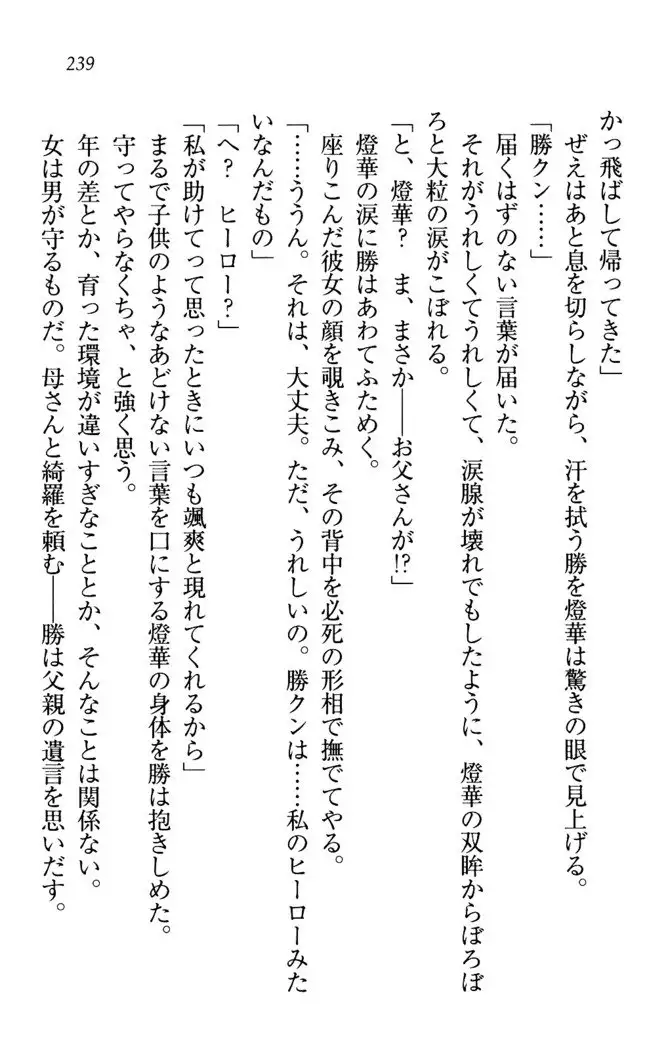 239
かっ飛ばして帰ってきた」
ぜえはあと息を切らしながら、汗を拭う勝を燈華は驚きの眼で見上げる。
「勝クン……」
届くはずのない言葉が届いた。
それがうれしくてうれしくて、涙腺が壊れでもしたように、燈華の双眸からぼろぼ
ろと大粒の涙がこぼれる。
「と、燈華？　ま、まさか――お父さんが!?」
燈華の涙に勝はあわてふためく。
座りこんだ彼女の顔を覗きこみ、その背中を必死の形相で撫でてやる。
「……ううん。それは、大丈夫。ただ、うれしいの。勝クンは……私のヒーローみた
いなんだもの」
「へ？　ヒーロー？」
「私が助けてって思ったときにいつも颯爽と現れてくれるから」
まるで子供のようなあどけない言葉を口にする燈華の身体を勝は抱きしめた。
守ってやらなくちゃ、と強く思う。
年の差とか、育った環境が違いすぎなこととか、そんなことは関係ない。
女は男が守るものだ。母さんと綺羅を頼む――勝は父親の遺言を思いだす。